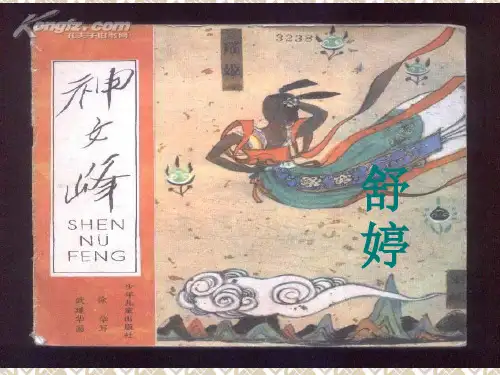 Kongfz.com
孔夫子旧书网
3238
瑶姬
神女峰
SHEN
NÜ
FENG
舒婷
少年儿童出版社